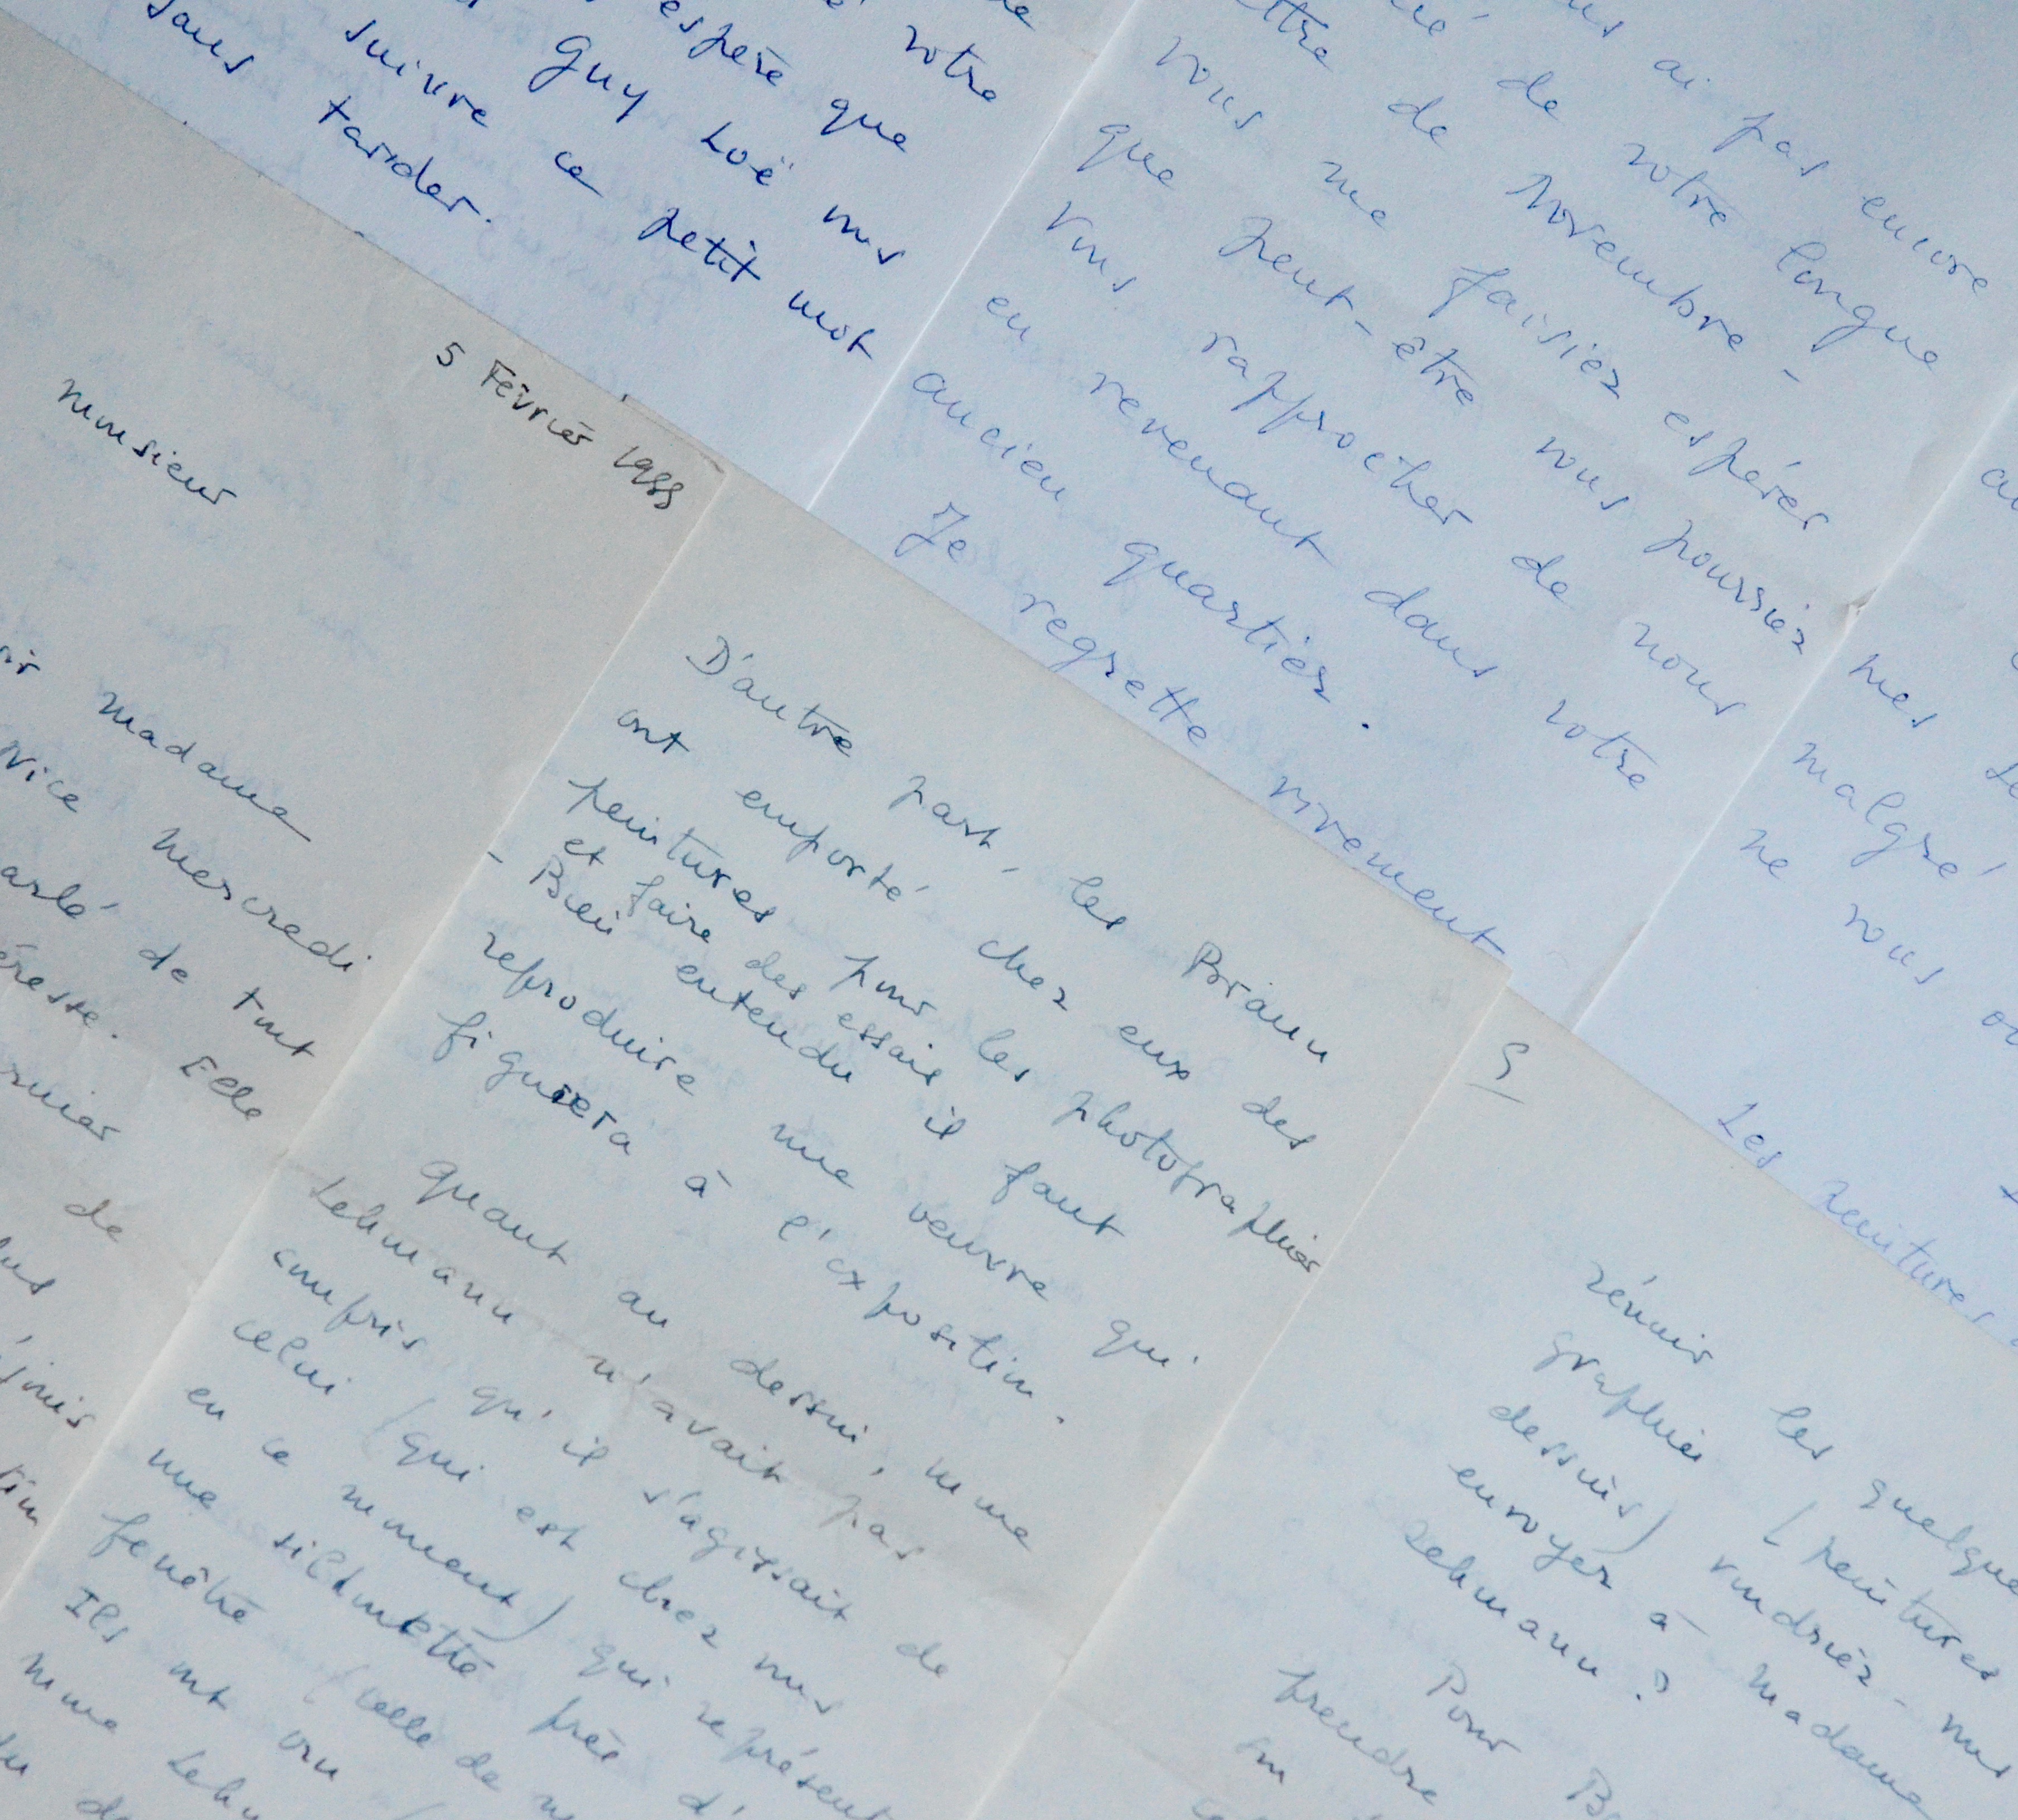 votre
espère que
Guy Loë nous
suivre ce petit mot
sans tarder.
ai pas encore
de votre longue
de Novembre -
vous me faisiez espérer
que peut-être vous pourriez
vous rapprocher de nous
en revenant dans votre
ancien quartier.
Je regrette vivement
mes
malgré
ne vous
Les peintures
5 Février 1988
Monsieur
madame
Nice Mercredi
de tout
Elle
de
D'autre part, les Briann
ont emporté chez eux des
peintures pour les photographier
et faire des essais
- Bien entendu il faut
reproduire une oeuvre qui
figurera à l'exposition.
Quant au dessin, Mme
Lehmann n'avait pas
compris qu'il s'agissait de
celui (qui est chez nous
en ce moment) qui représent
une silhouette près d'
fenêtre (celle de
Ils ont cru
Mme Lehm
réunir les quelque
graphies (peintures
dessins) voudriez-vous
envoyer à Madame
Lehmann ?
Pour
prendre